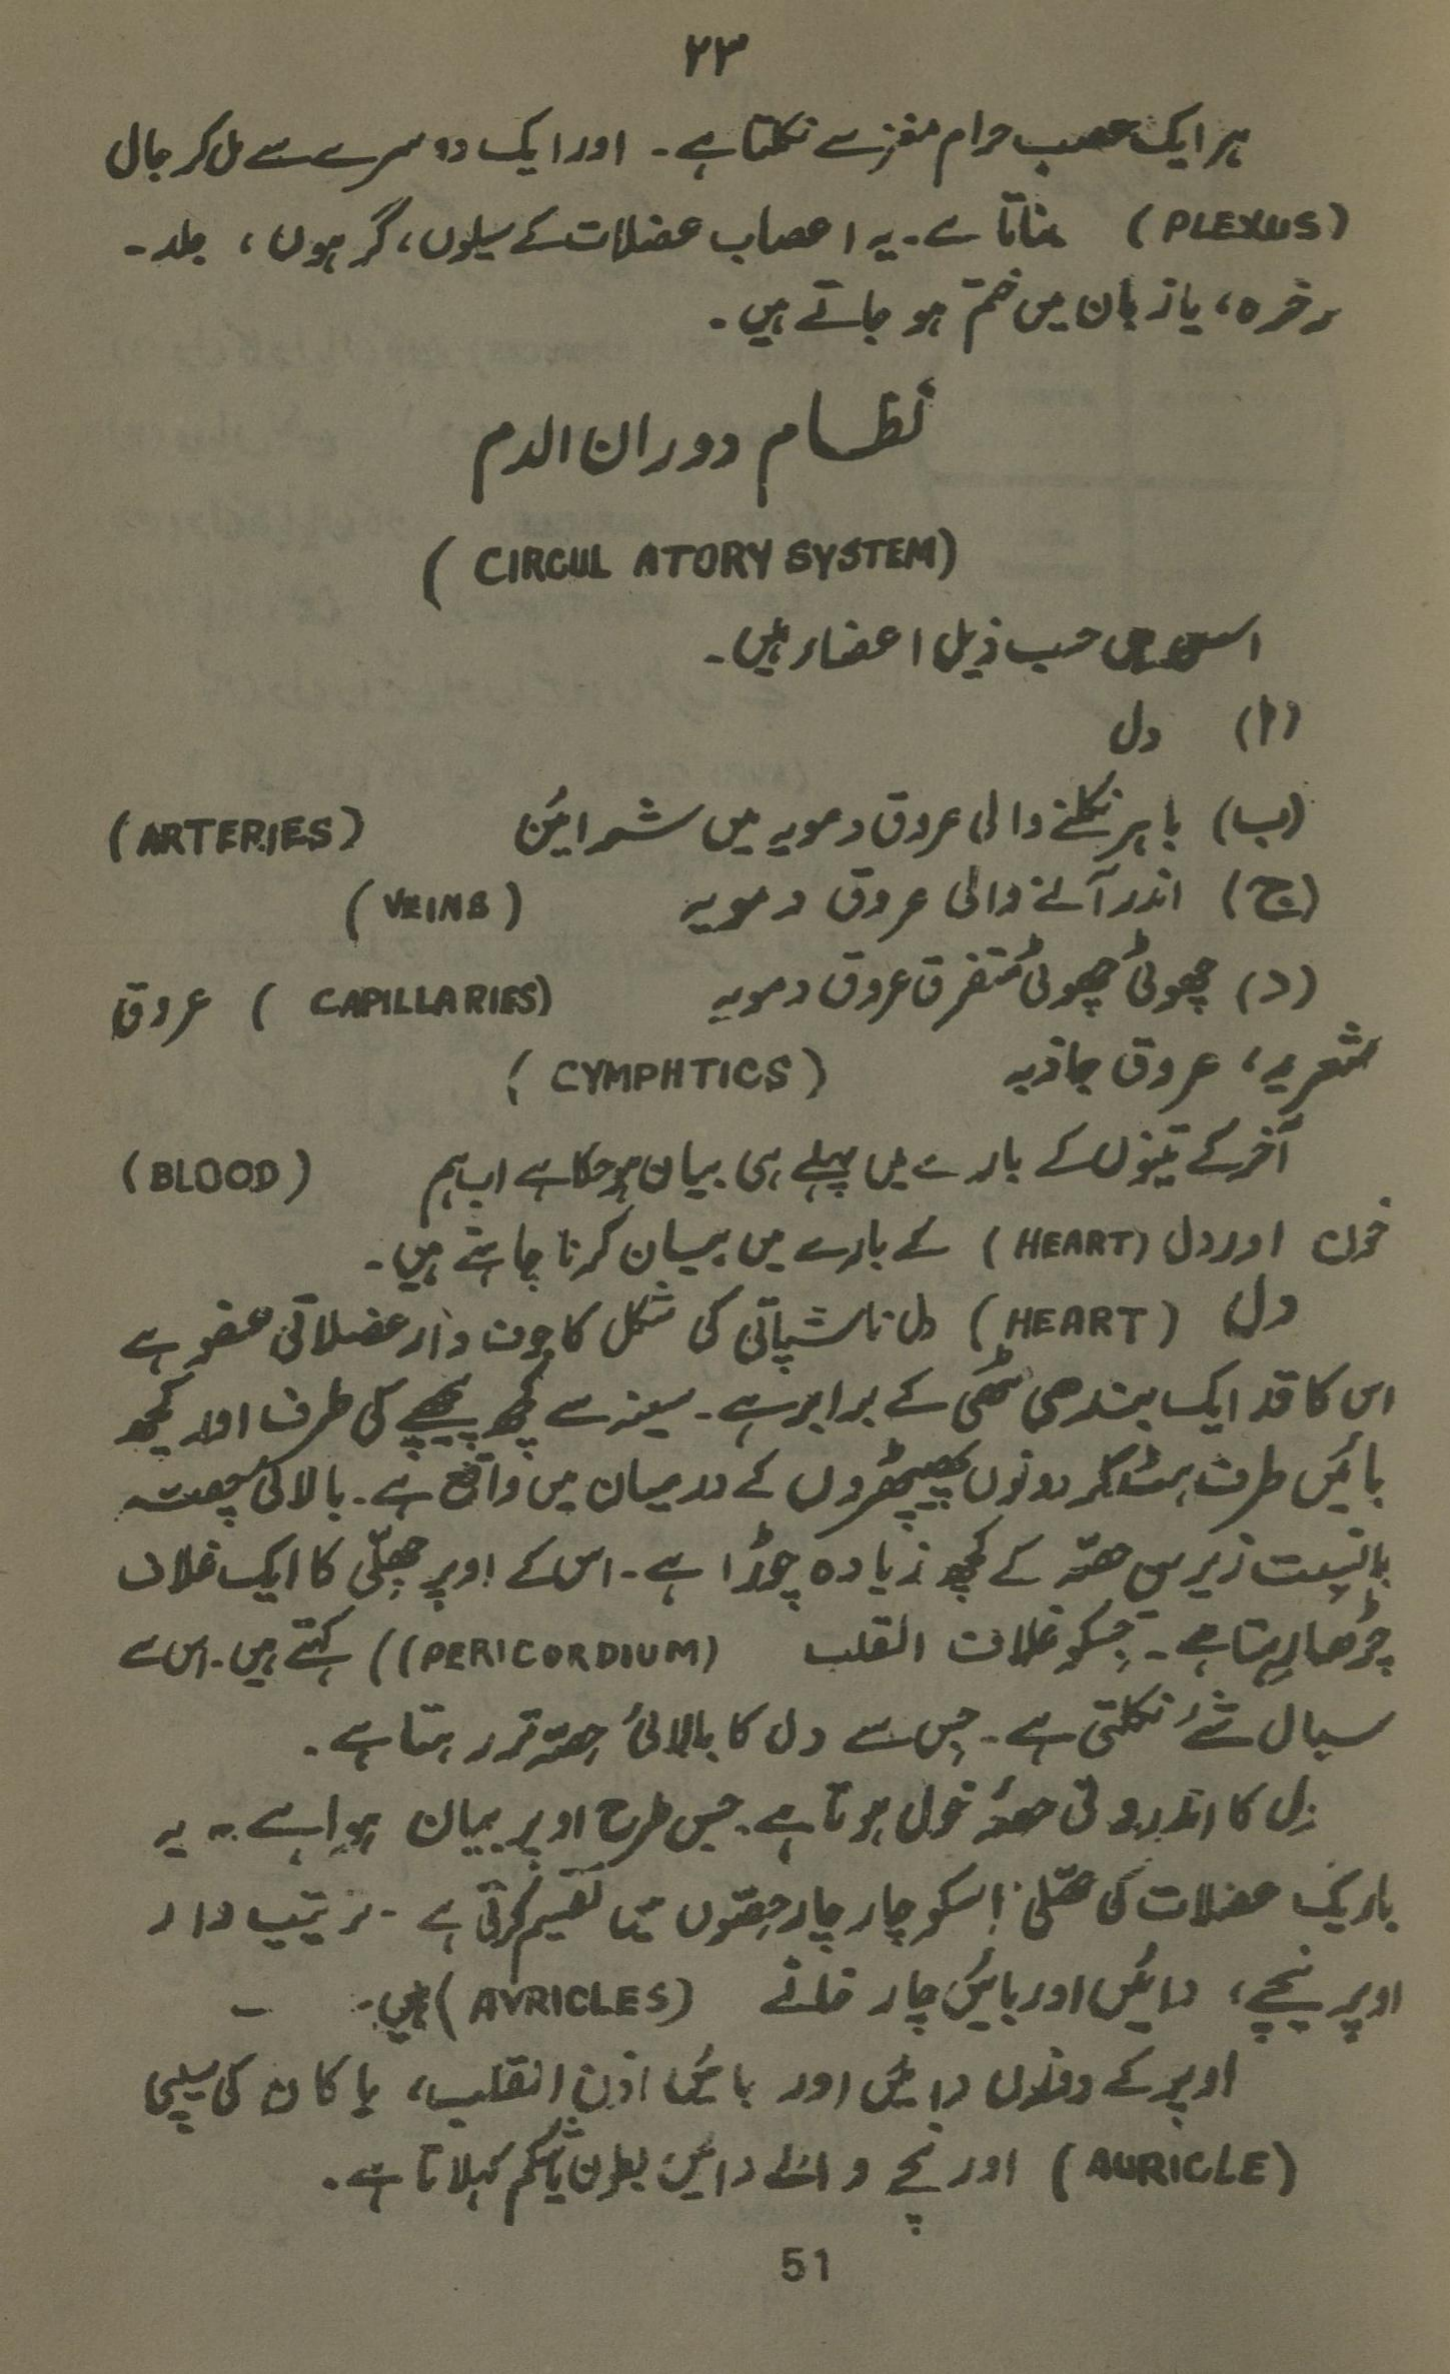 ۲۳
ہر ایک عصب حرام مغز سے نکلتا ہے۔ اور ایک دوسرے سے مل کر جال
(PLEXUS) بناتا ہے۔ یہ اعصاب عضلات کے سیلوں، گرہوں، جلد۔
نرخرہ، یا زبان میں ختم ہو جاتے ہیں۔
نظام دوران الدم
(CIRCUL ATORY SYSTEM)
اس میں حسب ذیل اعضاء ہیں۔
(ا) دل
(ب) باہر نکلنے والی عروق دمویہ میں شرائین (ARTERIES)
(ج) اندر آنے والی عروق دمویہ (VEINS)
(د) چھوٹی چھوٹی متفرق عروق دمویہ (CAPILLARIES) عروق
شعریہ، عروق جاذبہ (CYMPHTICS)
آخر کے تینوں کے بارے میں پہلے ہی بیان ہو چکا ہے اب ہم (BLOOD)
خون اور دل (HEART) کے بارے میں بیان کرنا چاہتے ہیں۔
دل (HEART) دل ناشپاتی کی شکل کا جوف دار عضلاتی عضو ہے
اس کا قد ایک بندھی مٹھی کے برابر ہے۔ سینہ سے کچھ پیچھے کی طرف اور کچھ
بائیں طرف ہٹ کر دونوں پھیپھڑوں کے درمیان میں واقع ہے۔ بالائی حصہ
بانسبت زیریں حصہ کے کچھ زیادہ چوڑا ہے۔ اس کے اوپر جھلّی کا ایک غلاف
چڑھا رہتا ہے۔ جسکو غلاف القلب (PERICORDIUM)) کہتے ہیں۔ اس سے
سیال شئے نکلتی ہے۔ جس سے دل کا بالائی حصہ تر رہتا ہے۔
دل کا اندرونی حصہ خول ہوتا ہے۔ جس طرح اوپر بیان ہوا ہے۔ یہ
باریک عضلات کی جھلی اسکو چار چار حصوں میں تقسیم کرتی ہے۔ ترتیب دار
اوپر نیچے، دائیں اور بائیں چار خانے (AVRICLES) ہیں۔
اوپر کے دونوں دائیں اور بائیں اذن القلب، یا کان کی سیپی
(AURICLE) اور نچے والے دائیں بطن یا شکم کہلاتا ہے۔
51